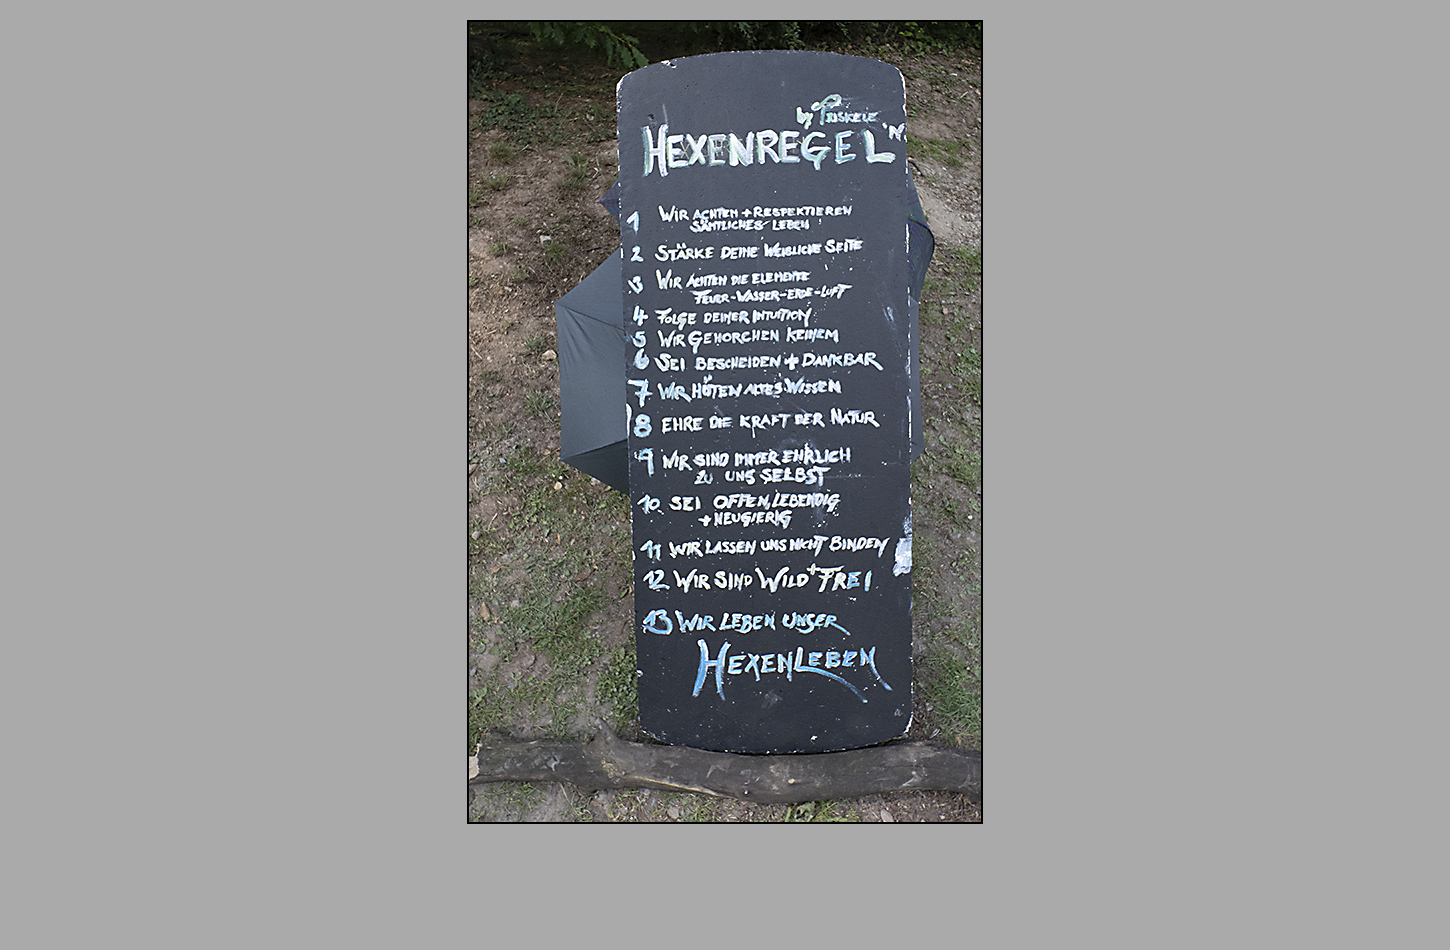 by Triskele
HEXENREGEL'N
1 WIR ACHTEN + RESPEKTIEREN
SÄMTLICHES LEBEN
2 STÄRKE DEINE WEIBLICHE SEITE
3 WIR ACHTEN DIE ELEMENTE
FEUER-WASSER-ERDE-LUFT
4 FOLGE DEINER INTUITION
5 WIR GEHORCHEN KEINEM
6 SEI BESCHEIDEN + DANKBAR
7 WIR HÜTEN ALTES WISSEN
8 EHRE DIE KRAFT DER NATUR
9 WIR SIND IMMER EHRLICH
ZU UNS SELBST
10 SEI OFFEN, LEBENDIG
+ NEUGIERIG
11 WIR LASSEN UNS NICHT BINDEN
12 WIR SIND WILD + FREI
13 WIR LEBEN UNSER
HEXENLEBEN